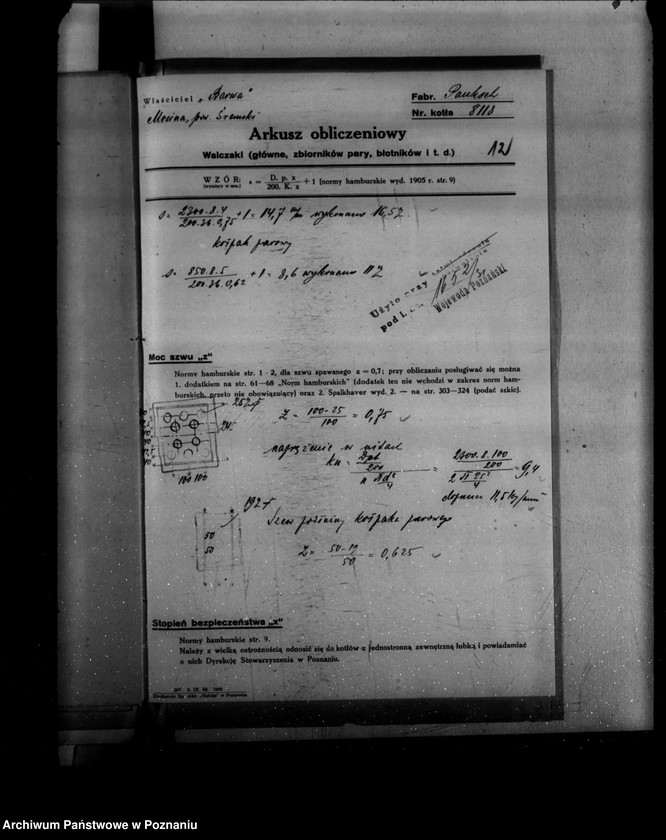 Właściciel „Barwa"
Mosina, pow. Śremski
Fabr. Pauksch
Nr. kotła 8113
Arkusz obliczeniowy
Walczaki (główne, zbiorników pary, błotników i t. d.)
WZÓR: s = D. p. x / 200. K. z + 1 (normy hamburskie wyd. 1905 r. str. 9)
s = 2300.8.4 / 200.36.0,75 + 1 = 14,7 m/m wykonano 16,5
kołpak parowy
s = 850.8.5 / 200.36.0,62 + 1 = 8,6 wykonano 11
Użyto przy
pod l.
Wojewoda Poznański
Moc szwu „z"
Normy hamburskie str. 1-2, dla szwu spawanego z = 0,7; przy obliczaniu posługiwać się można
1. dodatkiem na str. 61—68 „Norm hamburskich" (dodatek ten nie wchodzi w zakres norm ham-
burskich, przeto nie obowiązujący) oraz 2. Spalkhaver wyd. 2. — na str. 303—324 (podać szkic).
Z = 100-25 / 100 = 0,75
100 100
naprężenie w nitach
= 2300.8.100 / 200 = 9,4
50
50
Szew podłużny kołpaka parowego
Z = 50-19 / 50 = 0,625
Stopień bezpieczeństwa „x"
Normy hamburskie str. 9.
Należy z wielką ostrożnością odnosić się do kotłów z jednostronną zewnętrzną łubką i powiadamiać
o nich Dyrekcję Stowarzyszenia w Poznaniu.
Archiwum Państwowe w Poznaniu